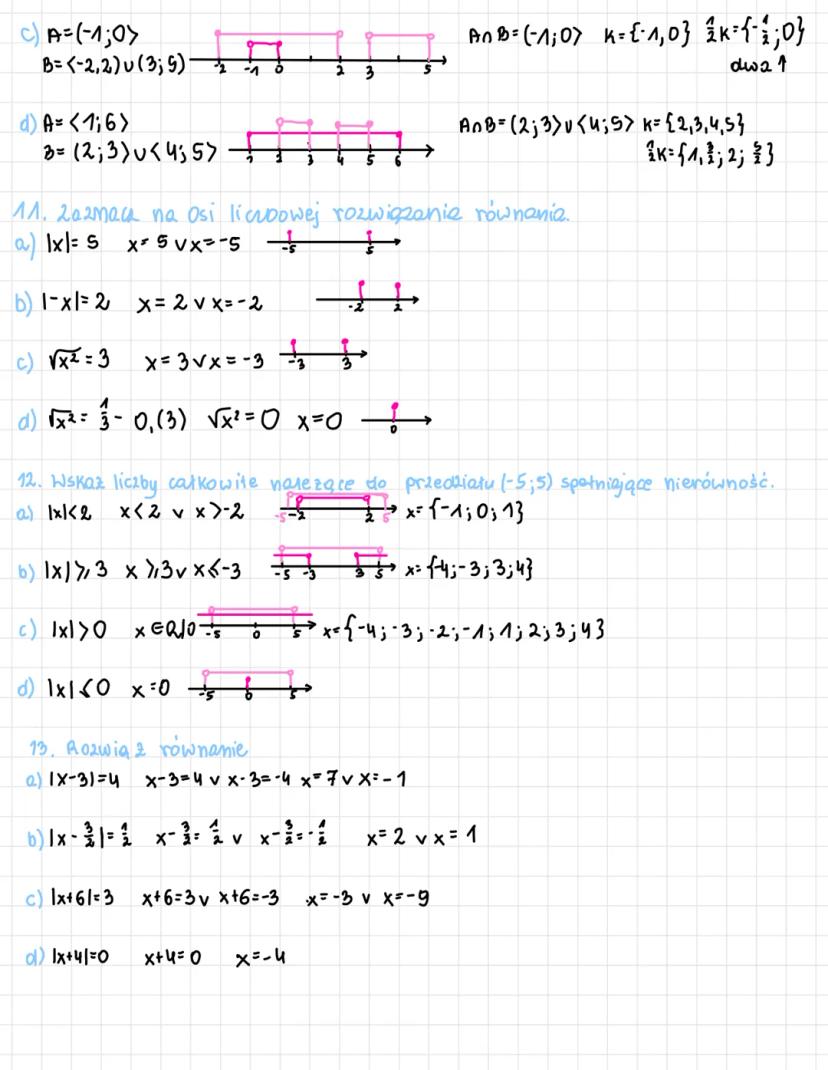 c) A=(-1;0> A∩B=(-1;0> K={-1,0} ½K={-½;0}
B=<-2,2)∪(3;5) -2 -1 0 2 3 5 dwa↑
d) A=<1;6> A∩B=(2;3>∪<4;5> K={2,3,4,5}
B=(2;3>∪<4;5> 1 2 3 4 5 6 ½K={1,3/2;2;5/2}
11. Zaznacz na osi liczbowej rozwiązania równania.
a) |x|=5 x=5 ∨ x=-5 -5 5
b) |-x|=2 x=2 ∨ x=-2 -2 2
c) √x²=3 x=3 ∨ x=-3 -3 3
d) √x²=1/3-0,(3) √x²=0 x=0 0
12. Wskaż liczby całkowite należące do przedziału (-5;5) spełniające nierówność.
a) |x|<2 x<2 ∨ x>-2 -5 -2 2 5 x={-1;0;1}
b) |x|⩾3 x⩾3 ∨ x⩽-3 -5 -3 3 5 x={-4;-3;3;4}
c) |x|>0 x∈R\0 -5 0 5 x={-4;-3;-2;-1;1;2;3;4}
d) |x|⩽0 x=0 -5 0 5
13. Rozwiąż równanie
a) |x-3|=4 x-3=4 ∨ x-3=-4 x=7 ∨ x=-1
b) |x-3/2|=½ x-3/2=½ ∨ x-3/2=-½ x=2 ∨ x=1
c) |x+6|=3 x+6=3 ∨ x+6=-3 x=-3 ∨ x=-9
d) |x+4|=0 x+4=0 x=-4